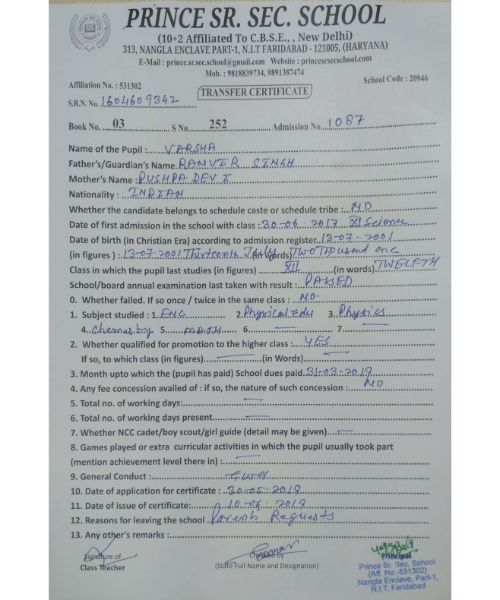 PRINCE SR. SEC. SCHOOL
(10+2 Affiliated To C.B.S.E., , New Delhi)
313, NANGLA ENCLAVE PART-1, N.I.T FARIDABAD - 121005, (HARYANA)
E-Mail : prince.sr.sec.school@gmail.com Website : princesrsecschool.com
Mob. : 9818839734, 9891387474
Affiliation No. : 531302
School Code : 20946
TRANSFER CERTIFICATE
S.R.N. No. 1604609342
Book No. 03 S No. 252 Admission No. 1087
Name of the Pupil : VARSHA
Father's/Guardian's Name RANVIR SINGH
Mother's Name : PUSHPA DEVI
Nationality : INDIAN
Whether the candidate belongs to schedule caste or schedule tribe : NO
Date of first admission in the school with class : 30-06 2017 XI Science
Date of birth (in Christian Era) according to admission register 13-07-2001
(in figures) : 13-07-2001 Thirteenth July (in words) Two Thousand one
Class in which the pupil last studies (in figures) XII (in words) TWELFTH
School/board annual examination last taken with result : PASSED
0. Whether failed. If so once / twice in the same class : NO
1. Subject studied : 1. ENG 2. Physical Edu 3. Physics
4. Chemestry 5. MATH 6. 7.
2. Whether qualified for promotion to the higher class : YES
If so, to which class (in figures) (in Words)
3. Month upto which the (pupil has paid) School dues paid 31-03-2019
4. Any fee concession availed of : if so, the nature of such concession : NO
5. Total no. of working days:
6. Total no. of working days present
7. Whether NCC cadet/boy scout/girl guide (detail may be given)
8. Games played or extra curricular activities in which the pupil usually took part
(mention achievement level there in) :
9. General Conduct :
10. Date of application for certificate : 30-05-2019
11. Date of issue of certificate: 10-06-2019
12. Reasons for leaving the school Parents Requests
13. Any other's remarks :
Signature of
Class Teacher
(State Full Name and Designation)
Principal
Prince Sr. Sec. School
(Aff. No.-531302)
Nangla Enclave, Part-1,
N.I.T. Faridabad